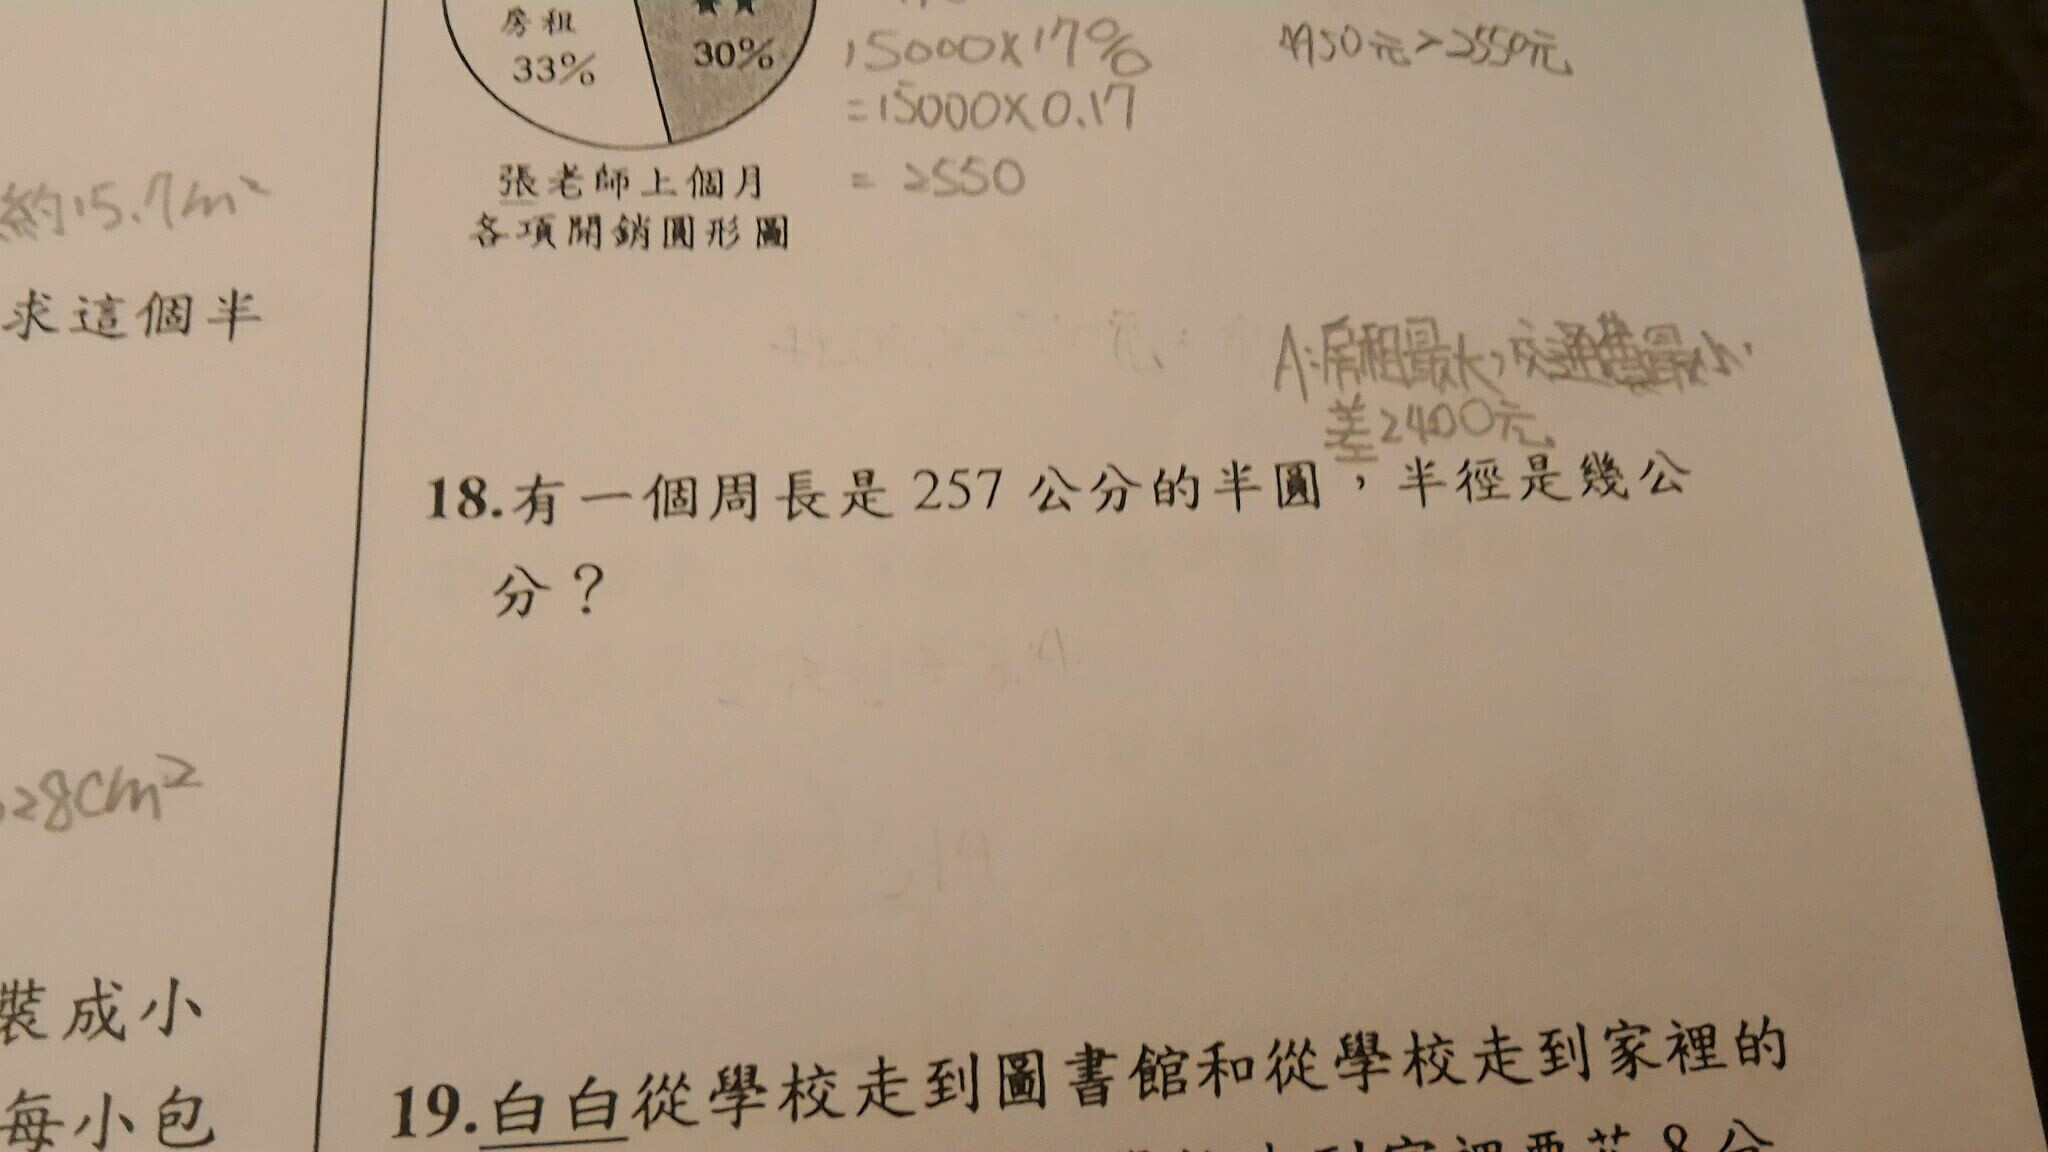 約15.7m²
求這個半
28cm²
裝成小
每小包
房租
33%
★★
30%
張老師上個月
各項開銷圓形圖
15000×17%
=15000×0.17
= 2550
4950元>2550元
A:房租最大,交通費最小,
差2400元
18.有一個周長是257公分的半圓,半徑是幾公
分?
19.白白從學校走到圖書館和從學校走到家裡的